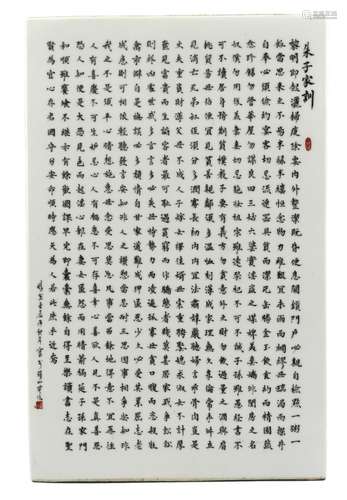 朱子家訓
黎明即起灑掃庭除要內外整潔既昏便息關鎖門戶必親自檢點一粥一
飯當思來之不易半絲半縷恒念物力維艱宜未雨而綢繆毋臨渴而掘井
自奉必須儉約宴客切忌流連器具質而潔瓦缶勝金玉飲食約而精園蔬
愈珍饈勿營華屋勿謀良田三姑六婆實淫盜之媒婢美妾嬌非閨房之
奴僕勿用俊美妻妾切忌艷妝祖宗雖遠祭祀不可不誠子孫雖愚經書不
可不讀居身務期質樸教子要有義方勿貪意外之財勿飲過量之酒與肩
挑貿易毋佔便宜見貧苦親鄰須多溫恤刻薄成家理無久享倫常乖舛立
見消亡兄弟叔侄須分多潤寡長幼內外宜法肅辭嚴聽婦言乖骨肉豈是
丈夫重貲財薄父母不成人子嫁女擇佳婿毋索重聘娶媳求淑女勿計厚
奩見富貴而生諂容者最可恥遇貧窮而作驕態者賤莫甚居家戒爭訟訟
則終凶處世戒多言言多必失毋恃勢力而凌逼孤寡毋貪口腹而恣殺
禽乖僻自是悔誤必多頹惰自甘家道難成狎暱惡少久必受其累屈志老
成急則可相依輕聽發言安知非人之譖訴當忍耐三思因事相爭安知非
我之不是須平心暗想施惠無念受恩莫忘凡事當留餘地得意不宜再往
人有喜慶不可生妒忌心人有禍患不可存喜幸心善欲人見不是真善惡
恐人知便是大惡見色而起淫心報在妻女匿怨而用暗箭禍延子孫家門
和順雖饔飧不繼亦有餘歡國課早完即囊橐無餘自得至樂讀書志在聖
賢為官心存君國守分安命順時聽天為人若此庶乎近焉